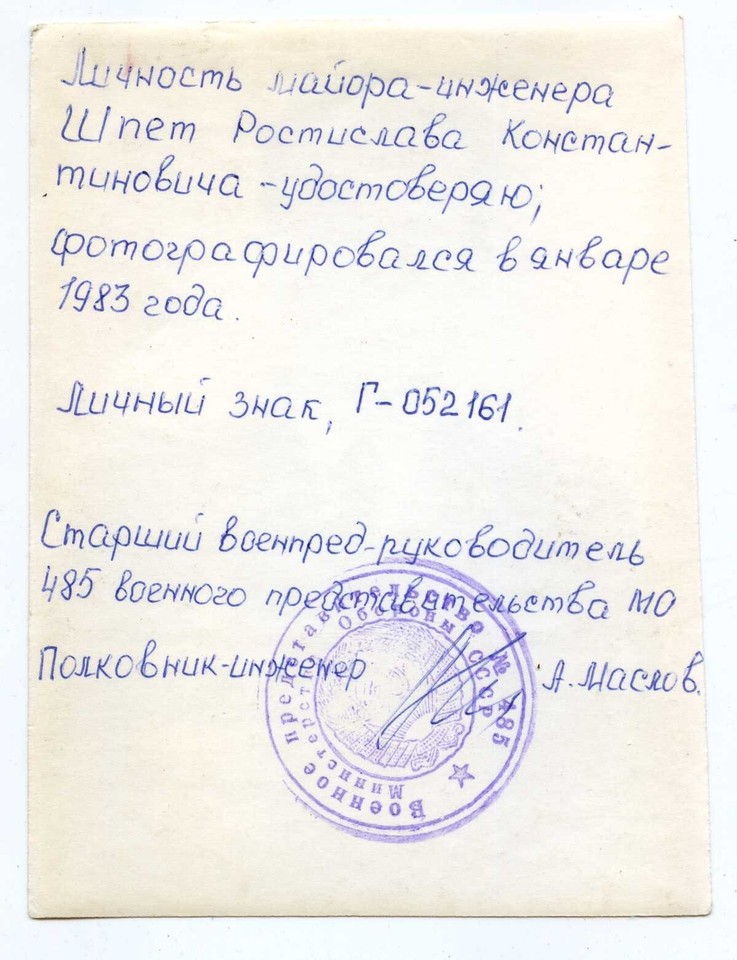 Личность майора-инженера
Шпет Ростислава Констан-
тиновича - удостоверяю;
фотографировался в январе
1983 года.
Личный знак, Г-052161.
Старший военпред-руководитель
485 военного представительства МО
Полковник-инженер А. Маслов.
Военное представительство № 485
Министерство Обороны СССР